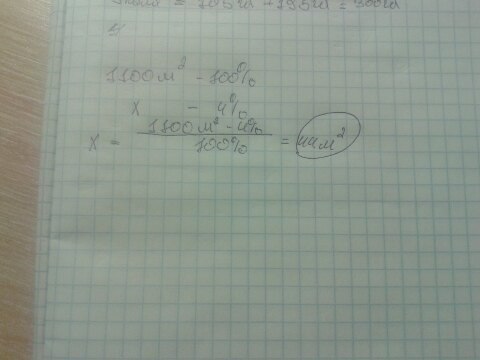 = 105 га + 195 га = 300 га
1100 м² - 100%
х - 4%
х = 1100 м² · 4% / 100% = 44 м²